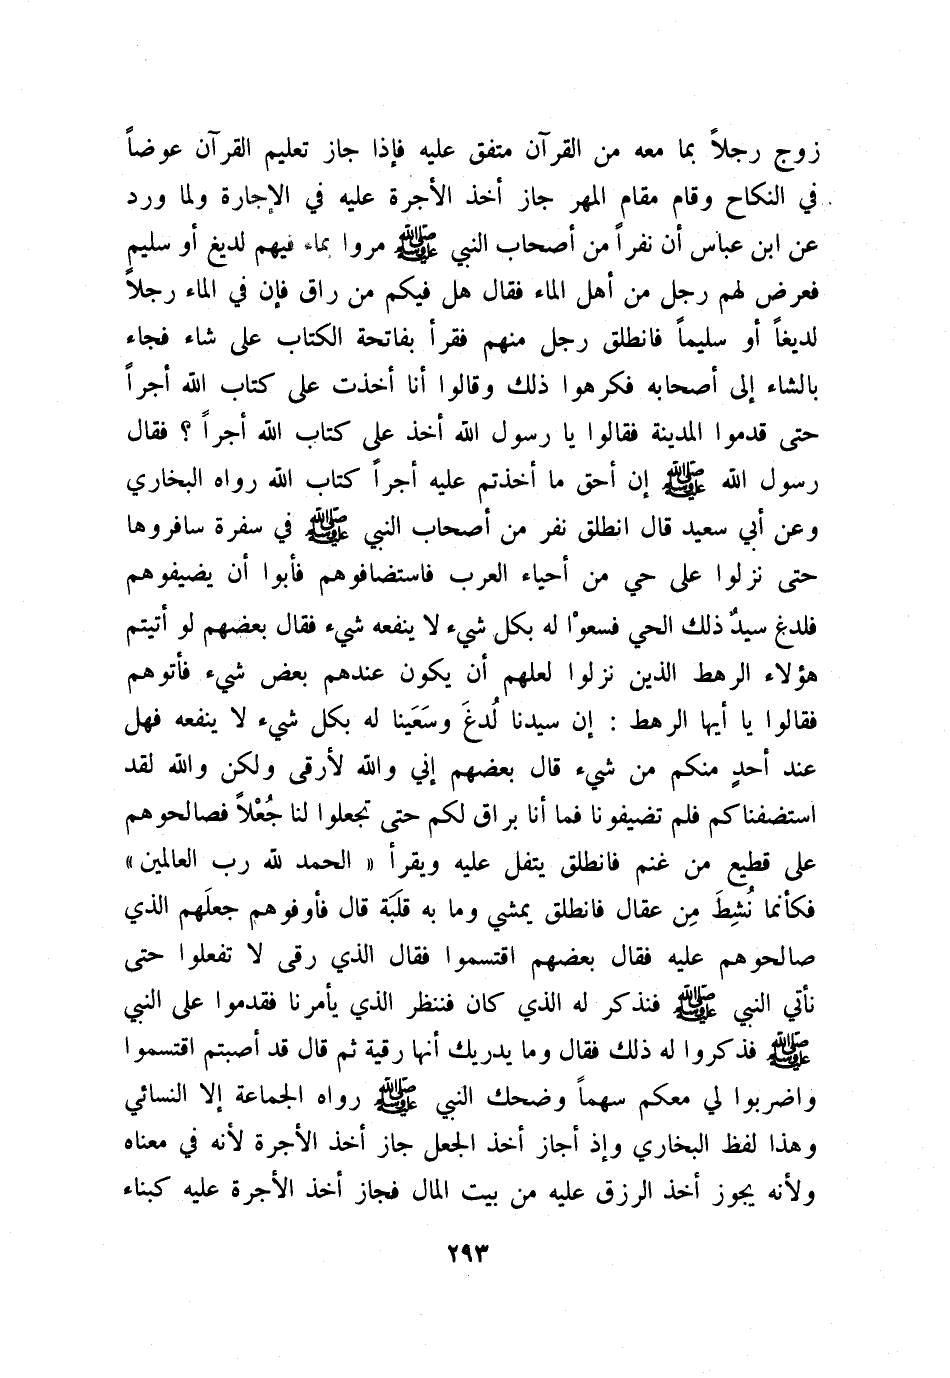 زوج رجلاً بما معه من القرآن متفق عليه فإذا جاز تعليم القرآن عوضاً
في النكاح وقام مقام المهر جاز أخذ الأجرة عليه في الإجارة ولما ورد
عن ابن عباس أن نفراً من أصحاب النبي ﷺ مروا بماء فيهم لديغ أو سليم
فعرض لهم رجل من أهل الماء فقال هل فيكم من راق فإن في الماء رجلاً
لديغاً أو سليماً فانطلق رجل منهم فقرأ بفاتحة الكتاب على شاء فجاء
بالشاء إلى أصحابه فكرهوا ذلك وقالوا أنا أخذت على كتاب الله أجراً
حتى قدموا المدينة فقالوا يا رسول الله أخذ على كتاب الله أجراً ؟ فقال
رسول الله ﷺ إن أحق ما أخذتم عليه أجراً كتاب الله رواه البخاري
وعن أبي سعيد قال انطلق نفر من أصحاب النبي ﷺ في سفرة سافروها
حتى نزلوا على حي من أحياء العرب فاستضافوهم فأبوا أن يضيفوهم
فلدغ سيدٌ ذلك الحي فسعوْا له بكل شيء لا ينفعه شيء فقال بعضهم لو أتيتم
هؤلاء الرهط الذين نزلوا لعلهم أن يكون عندهم بعض شيء فأتوهم
فقالوا يا أيها الرهط : إن سيدنا لُدغَ وسَعَينا له بكل شيء لا ينفعه فهل
عند أحدٍ منكم من شيء قال بعضهم إني والله لأرقى ولكن والله لقد
استضفناكم فلم تضيفونا فما أنا براق لكم حتى تجعلوا لنا جُعْلاً فصالحوهم
على قطيع من غنم فانطلق يتفل عليه ويقرأ « الحمد لله رب العالمين »
فكأنما نُشِطَ مِن عقال فانطلق يمشي وما به قلَبَة قال فأوفوهم جعلَهم الذي
صالحوهم عليه فقال بعضهم اقتسموا فقال الذي رقى لا تفعلوا حتى
نأتي النبي ﷺ فنذكر له الذي كان فننظر الذي يأمرنا فقدموا على النبي
ﷺ فذكروا له ذلك فقال وما يدريك أنها رقية ثم قال قد أصبتم اقتسموا
واضربوا لي معكم سهماً وضحك النبي ﷺ رواه الجماعة إلا النسائي
وهذا لفظ البخاري وإذ أجاز أخذ الجعل جاز أخذ الأجرة لأنه في معناه
ولأنه يجوز أخذ الرزق عليه من بيت المال فجاز أخذ الأجرة عليه كبناء
٢٩٣